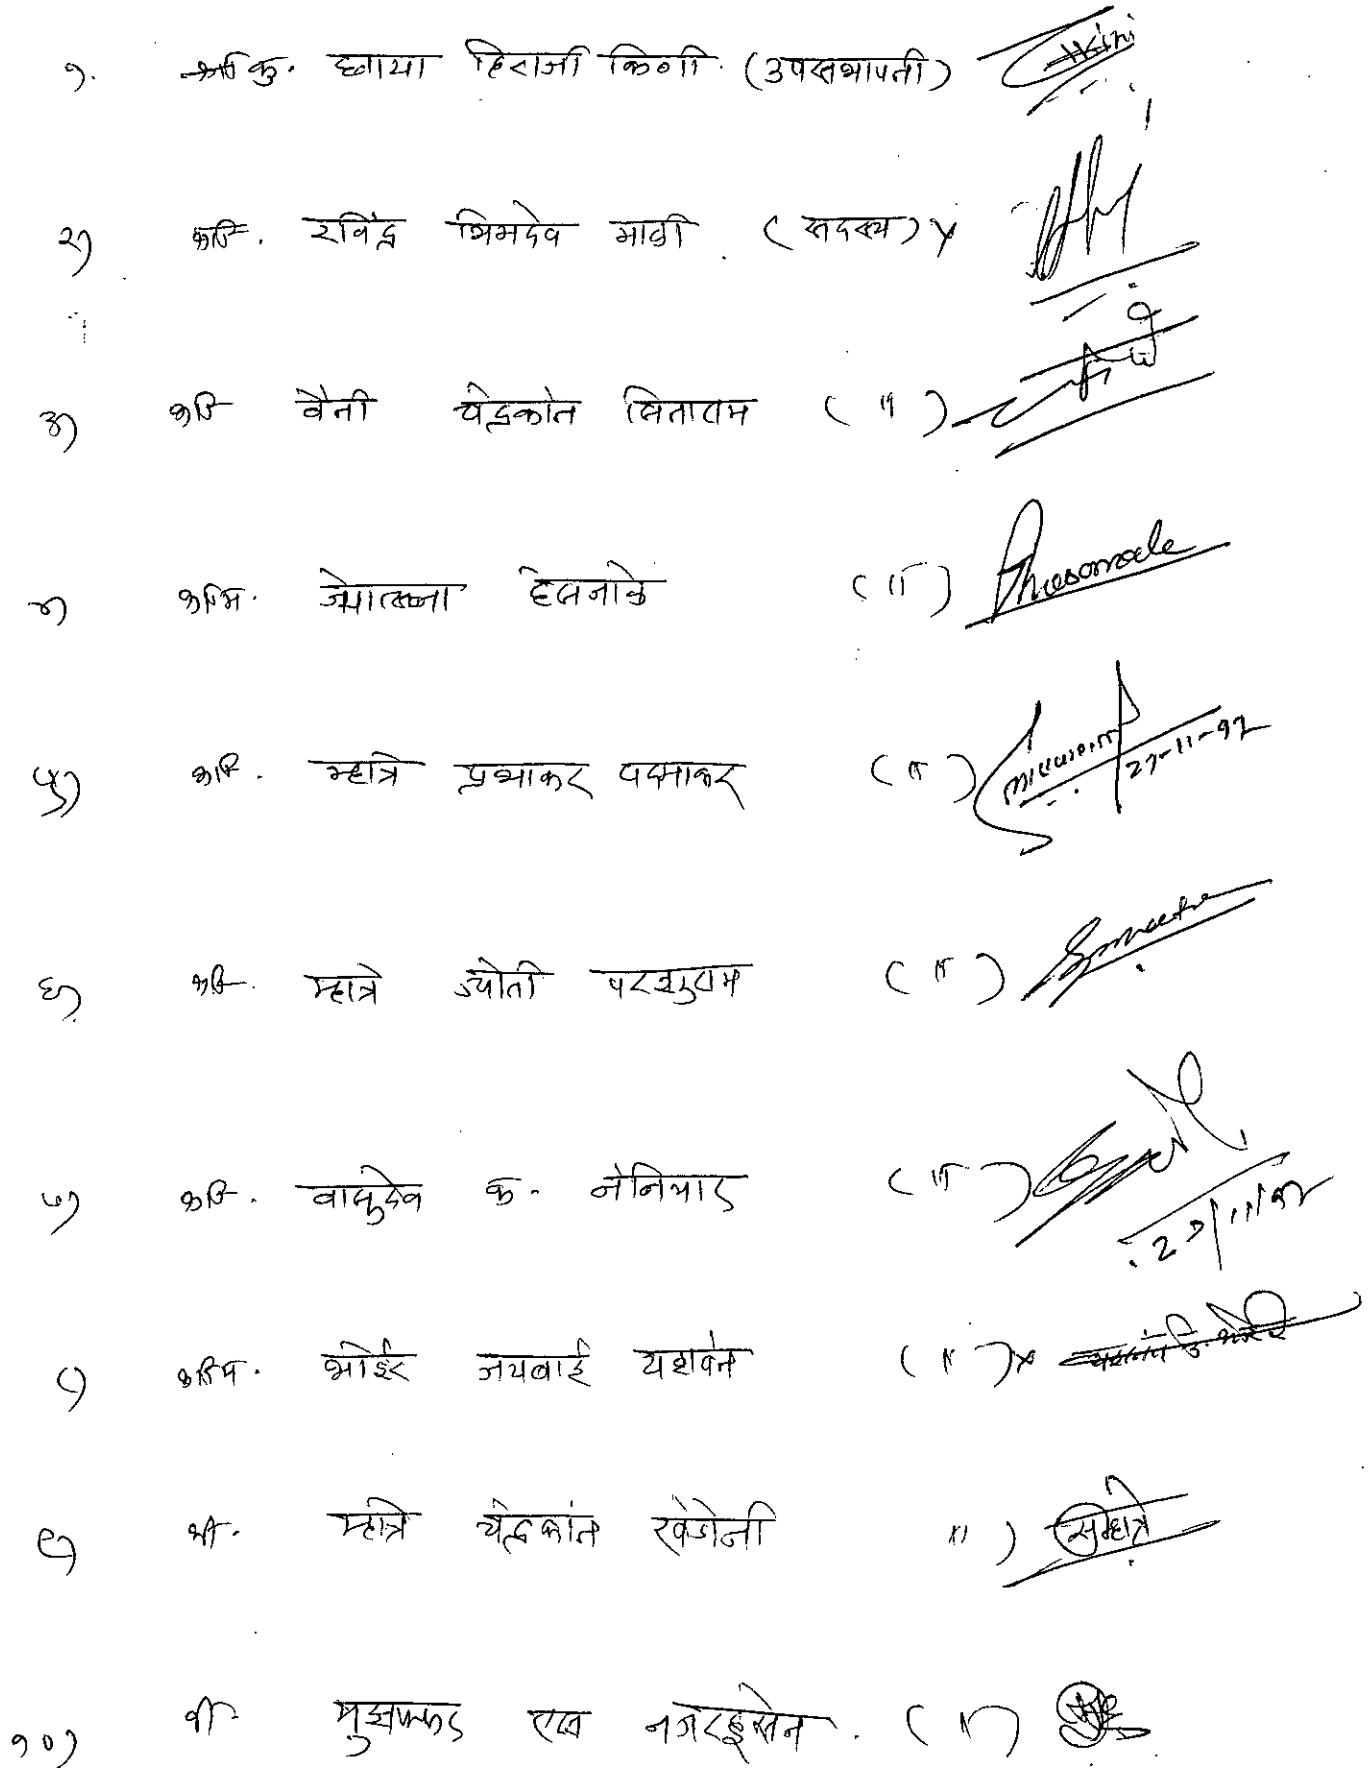 १. कु. छाया हिराजी किणी. (उपसभापती)
२) श्री. रविंद्र भिमदेव मावी. (सदस्य) x
३) श्री वैती चंद्रकांत सिताराम ( " )
४) श्रीम. ज्योत्स्ना हसनाळे ( " )
५) श्री. म्हात्रे प्रभाकर पदमाकर ( " ) 27-11-92
६) श्री. म्हात्रे ज्योती परशुराम ( " )
७) श्री. वासुदेव क. ( " ) 27/11/92
८) श्रीम. भोईर जयबाई यशवंत ( " ) x
९) श्री. म्हात्रे चंद्रकांत ") म्हात्रे
१०) श्री. मुझफ्फर एस नजरहुसेन. ( " )